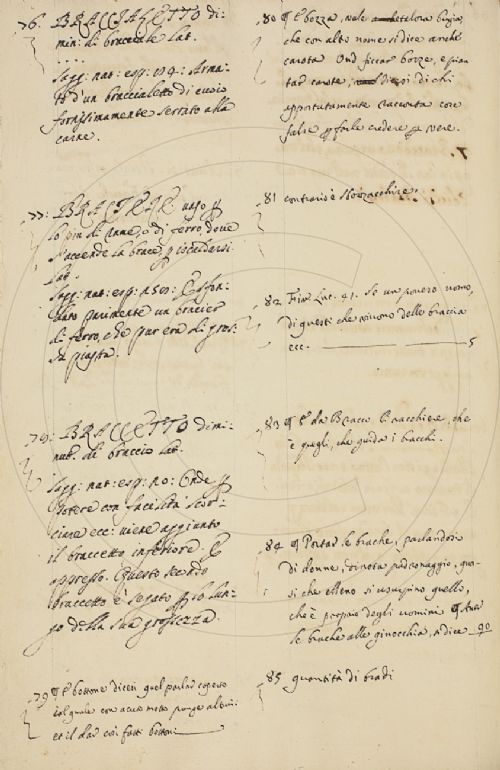 76. BRACCIALETTO di:
min: di bracciale Lat.
. . . .
Sagg: nat: esp: 194: Arma-
to d'un braccialetto di cuoio
fortissimamente serrato alla
carne.
77: BRACIERE vaso p
lo più di rame, o di ferro, dove
s'accende la brace, p iscaldarsi
Lat.
Sagg: nat: esp:
parimente un bracier
di ferro, che pur era di gros:
sa piastra.
BRACCETTO dimi:
nut. di braccio Lat.
Sagg: nat: esp: 20: Onde p
potere con facilità
ciare ecc: viene aggiunto
il braccetto inferiore. E
appresso. Questo secondo
braccetto è segato p lo lun-
go della sua grossezza.
79 E bottone dicesi quel parlar coperto
col quale con acuto motto punge alcuni
et il dar così fatti bottoni
80 E bozza, vale bugia,
che con altro nome si dice anche
carota Onde ficcar bozze, e pian
tar carote, dicesi di chi
apportatamente racconta cose
false p farle credere p vere.
81 contrario è Sbozzacchire.
82 Fir. Luc. 41. Se un povero uomo,
di questi che vivono delle braccia
ecc. 5
83 E da Bracco Bracchiere, che
è quegli, che guida i bracchi.
84 Portar le brache, parlandosi
di donne, dinota padronaggio, qua-
si che elleno si usurpino quello,
che è proprio degli uomini
le brache alle ginocchia, si dice 90
85 quantità di bradi